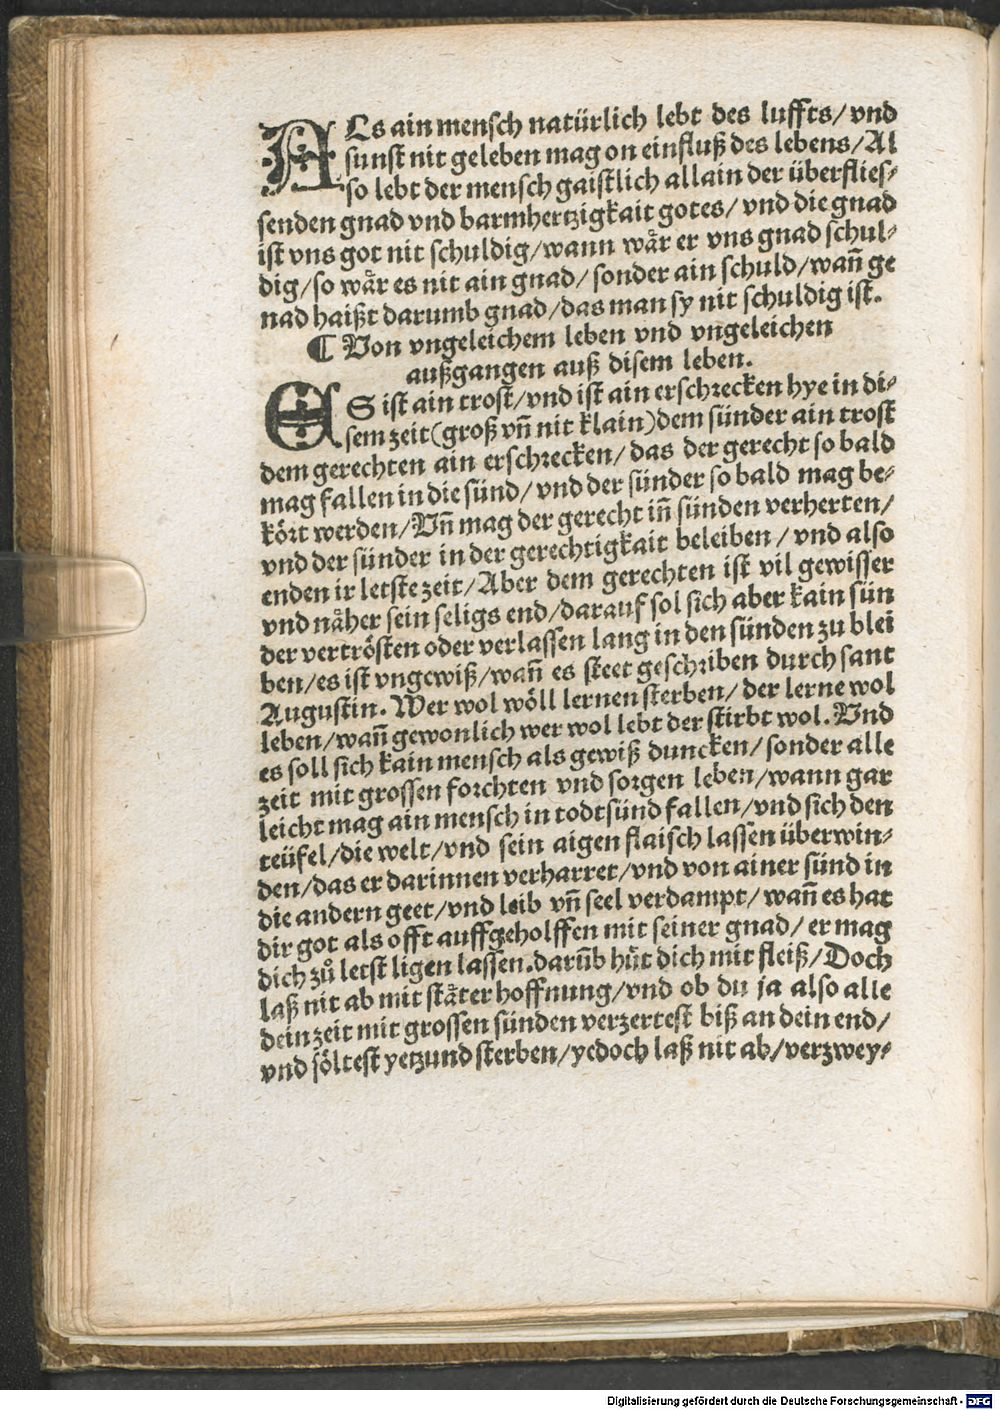 ALs ain mensch natürlich lebt des luffts/ vnd
sunst nit geleben mag on einfluß des lebens/ Al
so lebt der mensch gaistlich allain der überflies⸗
senden gnad vnd barmhertzigkait gotes/ vnd die gnad
ist vns got nit schuldig/ wann wår er vns gnad schul⸗
dig/ so wår es nit ain gnad/ sonder ain schuld/ wañ ge
nad haißt darumb gnad/ das man sy nit schuldig ist.
¶ Von vngeleichem leben vnd vngeleichen
außgangen auß disem leben.
ES ist ain trost/ vnd ist ain erschrecken hye in di⸗
sem zeit (groß vñ nit klain) dem sünder ain trost
dem gerechten ain erschrecken/ das der gerecht so bald
mag fallen in die sünd/ vnd der sünder so bald mag be⸗
kört werden/ Vñ mag der gerecht iñ sünden verherten/
vnd der sünder in der gerechtigkait beleiben/ vnd also
enden ir letste zeit/ Aber dem gerechten ist vil gewisser
vnd nåher sein seligs end/ darauf sol sich aber kain sün
der vertrösten oder verlassen lang in den sünden zu blei
ben/ es ist vngewiß/ wañ es steet geschriben durch sant
Augustin. Wer wol wöll lernen sterben/ der lerne wol
leben/ wañ gewonlich wer wol lebt der stirbt wol. Vnd
es soll sich kain mensch als gewiß duncken/ sonder alle
zeit mit grossen forchten vnd sorgen leben/ wann gar
leicht mag ain mensch in todtsünd fallen/ vnd sich den
teüfel/ die welt/ vnd sein aigen flaisch lassen überwin⸗
den/ das er darinnen verharret/ vnd von ainer sünd in
die andern geet/ vnd leib vñ seel verdampt/ wañ es hat
dir got als offt auffgeholffen mit seiner gnad/ er mag
dich zů letst ligen lassen. darũb hüt dich mit fleiß/ Doch
laß nit ab mit ståter hoffnung/ vnd ob du ja also alle
dein zeit mit grossen sünden verzertest biß an dein end/
vnd söltest yetzund sterben/ yedoch laß nit ab/ verzwey⸗
Digitalisierung gefördert durch die Deutsche Forschungsgemeinschaft - DFG